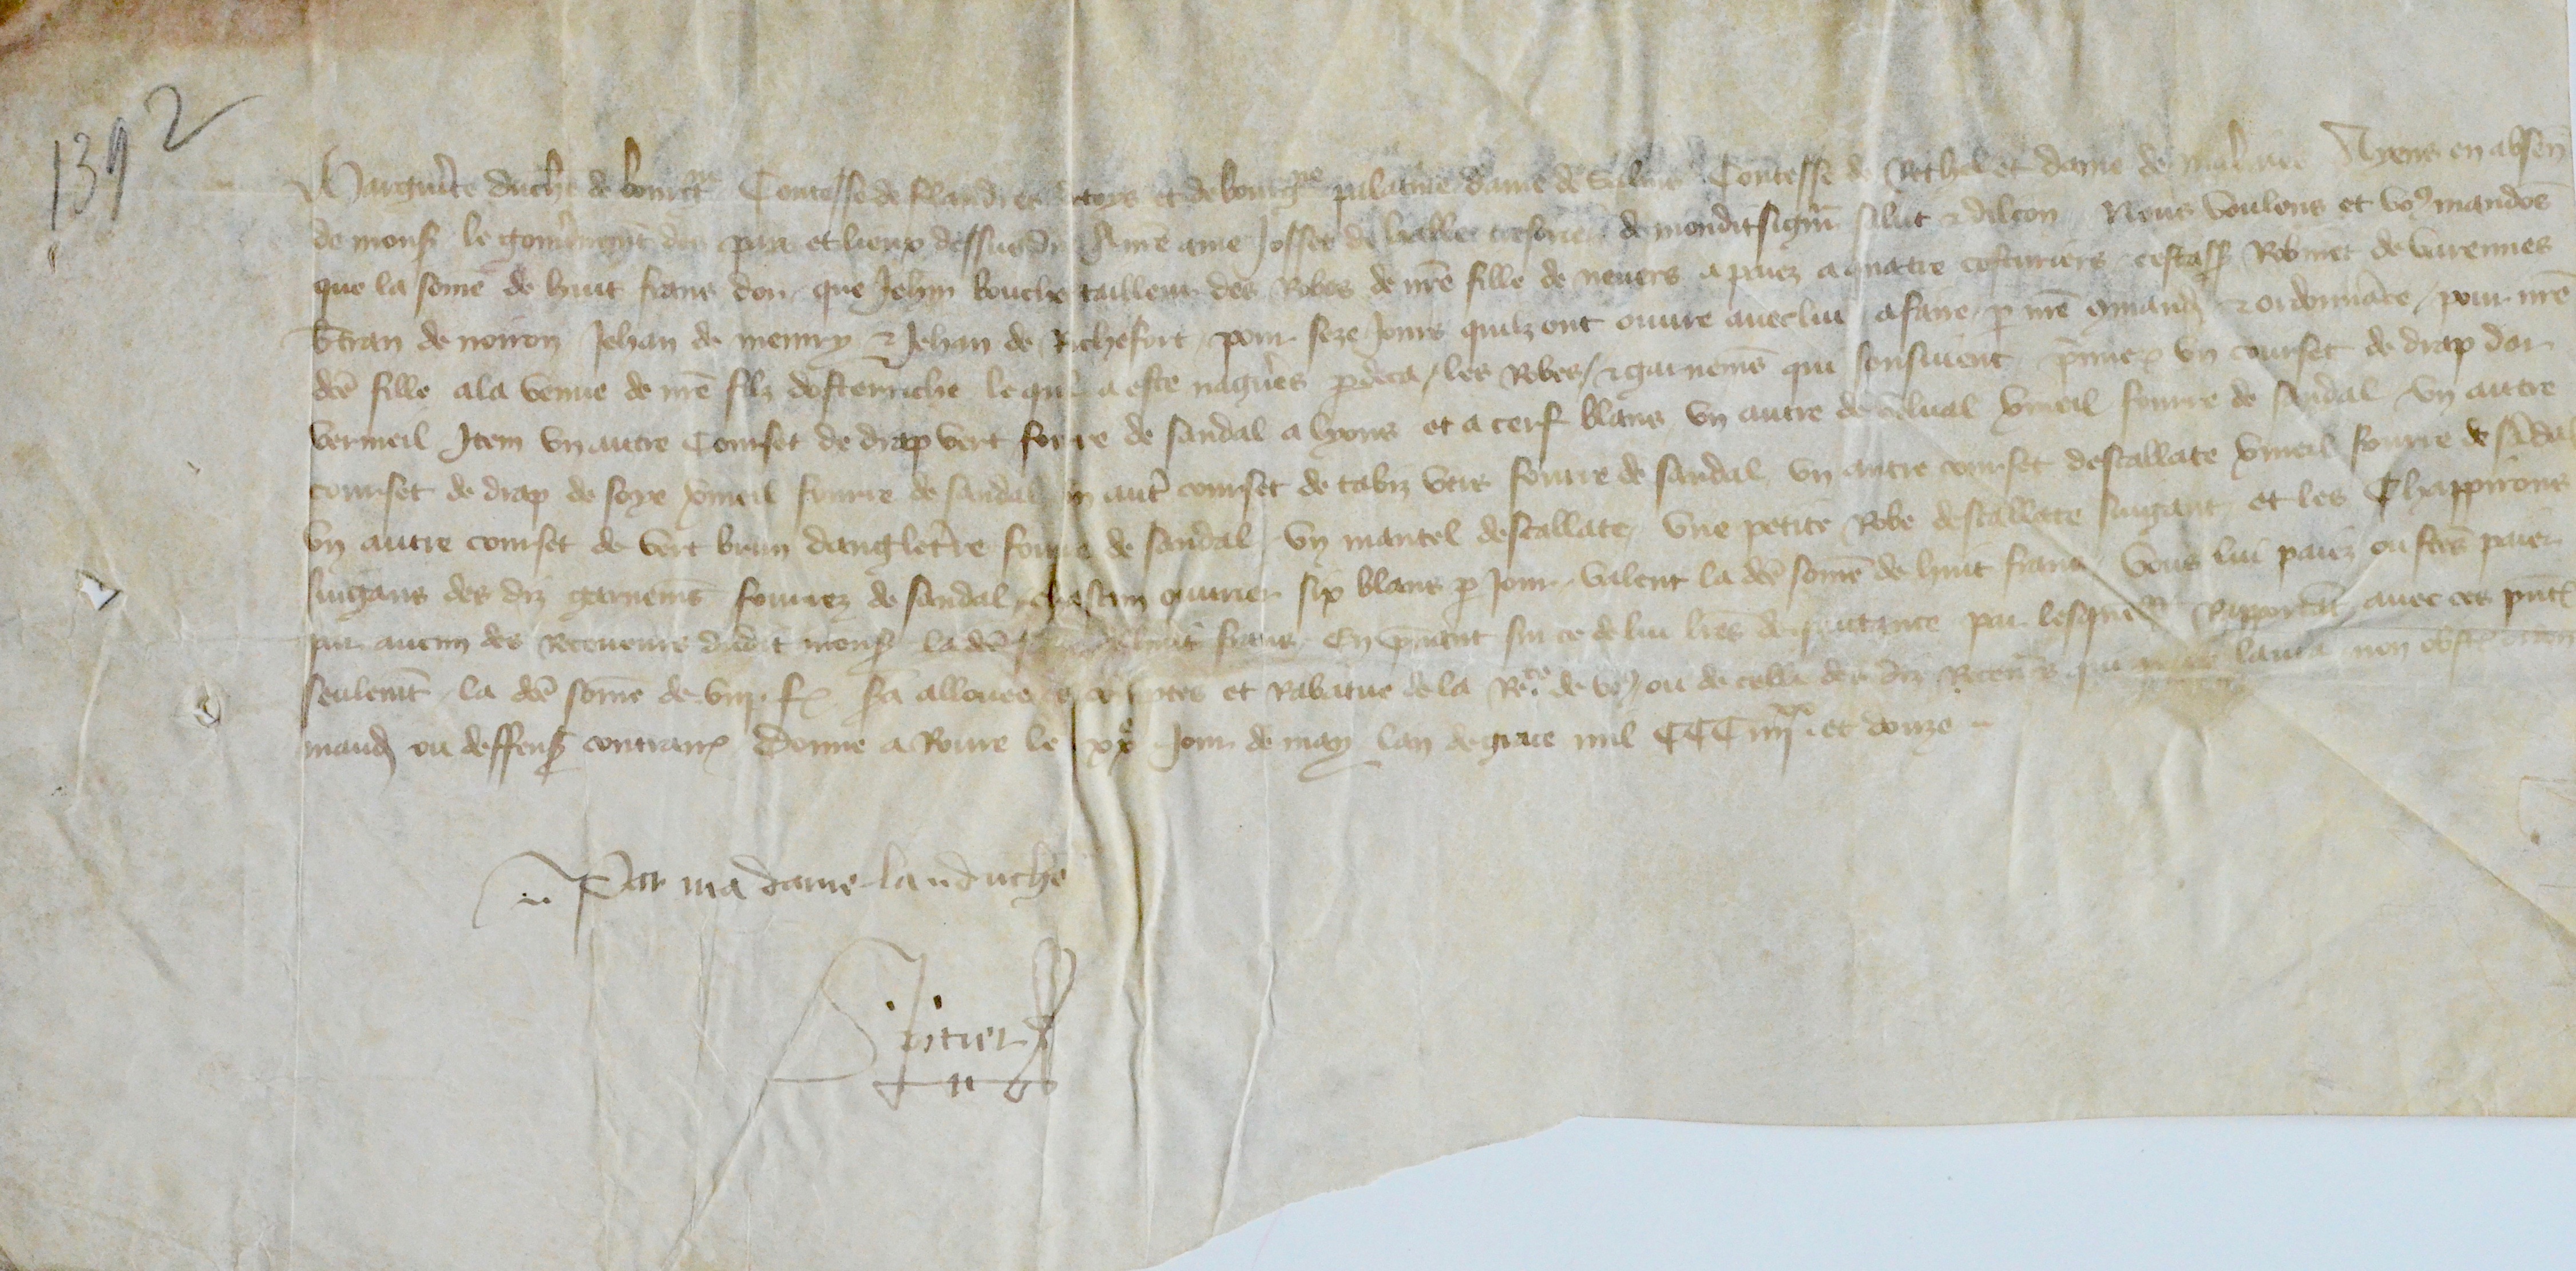 1392
Marguerite duchē de bourgne Contesse de flandres dartoys et de bourgne palatine dame de Salins Contesse de Rethel et dame de malines Ayens en absen
de mons le gouvnemēt des pais et lieux dessusd A nrē ame Josset de halle tresorier de monditsignr salut & dilcon Nous voulons et vo9 mandōs
que la somē de huit frans dor que Jehan bouche tailleur des Robes de nrē fille de nevers a paiez a quatre cousturiers cestass Robinet de varennes
de noiron Jehan de & Jehan de Richefort pour seze Jours quilz ont ouvre avec lui a faire p nrē 9mand & ordonnāce pour nrē
dcē fille a la venue de nrē filz dosterriche lequel a este nagueres pdeca les Robes & garnemēs qui sensuient un courset de drap dor
vermeil Item un autre Courset de drap vert fourre de sandal a lyons et a cerfs blans un autre de velual vmeil fourre de sandal un autre
courset de drap de soye vmeil fourre de sandal un autr courset de tabiz fourre de sandal un autre courset descallate vmeil fourre de sādal
un autre courset de vert brun dangleterre fourre de sandal un mantel descallate une petite Robe descallate sengant et les Chapperons
sengans des diz garnemēs fourrez de sandal chascun ouvrier six blans p Jour valent la dcē somē de huit frans vous lui paiez ou fctēs paier
par aucun des Receveurs dudit mons la dcē somē de huit frans En pnent sur ce de lui lrēs de quitance par lesquell Rapportāt avec ces pntes
seulemēt la dcē somē de viij fr sa allouee et Rabatue de la Rcē de vo9 ou de celli des diz Receveurs qui paie laura non obst
mand ou deffens contrair Donne a Rouvre le xxe Jour de may lan de grace mil CCC iiijxx et douze
Par madame la duchē